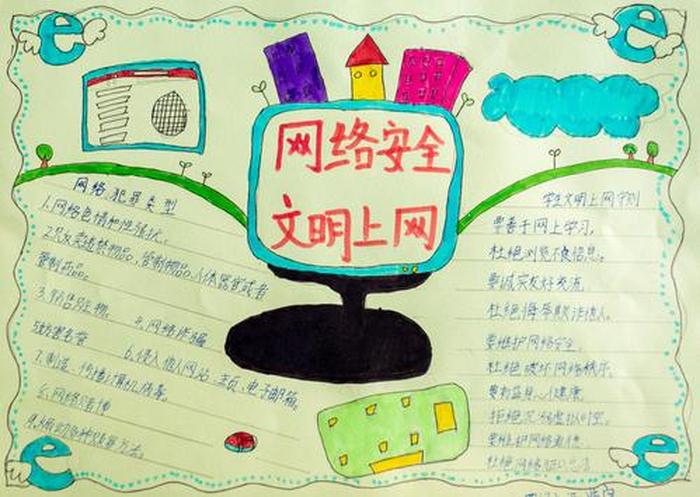 网络安全
文明上网
网络犯罪类型
1.网络色情和性骚扰。
2.贩卖违禁物品、管制物品、人体器官或者
管制药品。
3.销售赃物。 4.网络诈骗
5妨害名誉 6.侵入他人网站、主页、电子邮箱。
7.制造、传播计算机病毒。
8.网络赌博
学生文明上网守则
要善于网上学习,
杜绝浏览不良信息。
要诚实友好交流,
杜绝侮辱欺诈他人。
要维护网络安全,
杜绝破坏网络秩序。
要有益身心健康,
拒绝沉溺虚拟时空。
要维护网络
杜绝网络